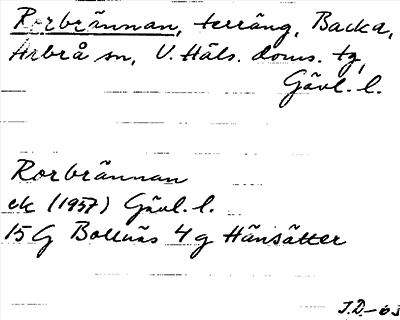 Rorbrännan, terräng, Backa,
Arbrå sn, V. Häls. doms. tg,
Gävl. l.
Rorbrännan
ek (1957) Gävl. l.
15 G Bollnäs 4 g Hänsätter
J.D.-63